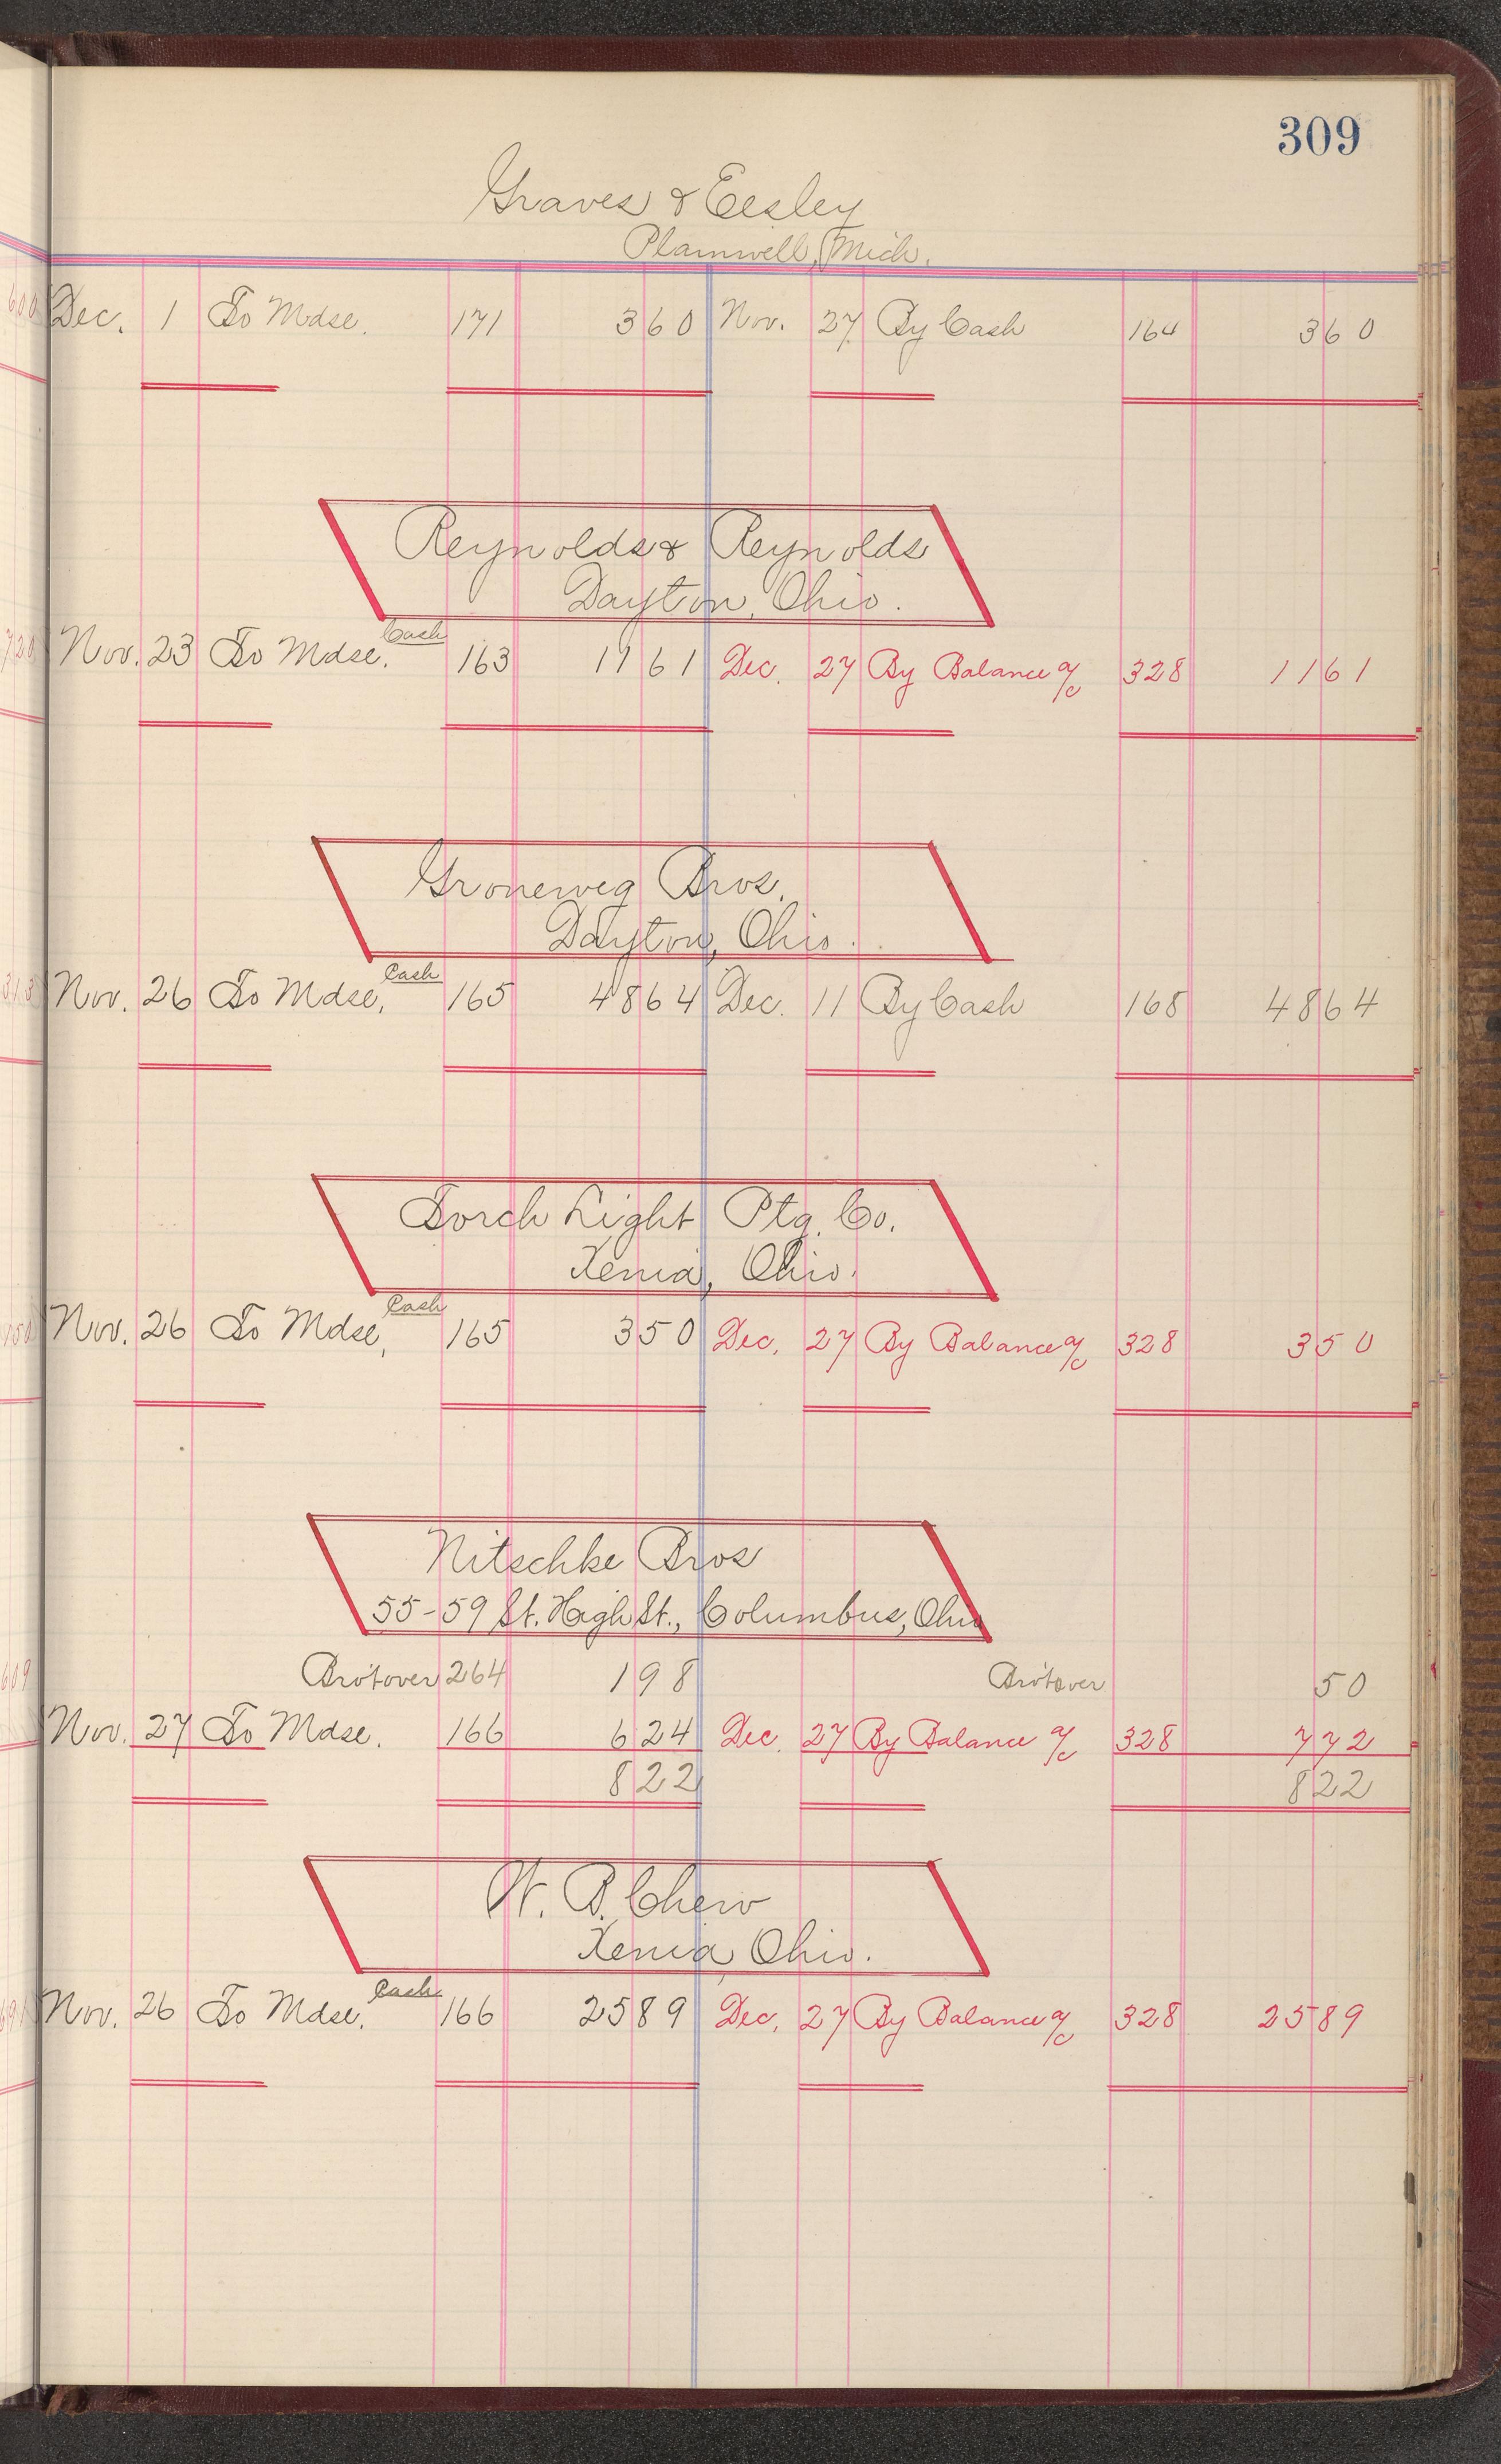 309
Graves & Eesley
Plainwell, Mich.
Dec. 1 To Mdse. 171 3 60 Nov. 27 By Cash 164 3 60
Reynolds & Reynolds
Dayton, Ohio.
Cash
Nov. 23 To Mdse. 163 11 61 Dec. 27 By Balance a/c 328 11 61
Groneweg Bros.
Dayton, Ohio.
Cash
Nov. 26 To Mdse, 165 48 64 Dec. 11 By Cash 168 48 64
Torch Light Ptg. Co.
Xenia, Ohio.
Cash
Nov. 26 To Mdse, 165 3 50 Dec. 27 By Balance a/c 328 3 50
Nitschke Bros
55-59 St. High St., Columbus, Ohio
Bro't over 264 1 98 Bro't over 50
Nov. 27 To Mdse. 166 6 24 Dec. 27 By Balance a/c 328 7 72
8 22 8 22
W. B. Chew
Xenia, Ohio.
Cash
Nov. 26 To Mdse. 166 25 89 Dec. 27 By Balance a/c 328 25 89